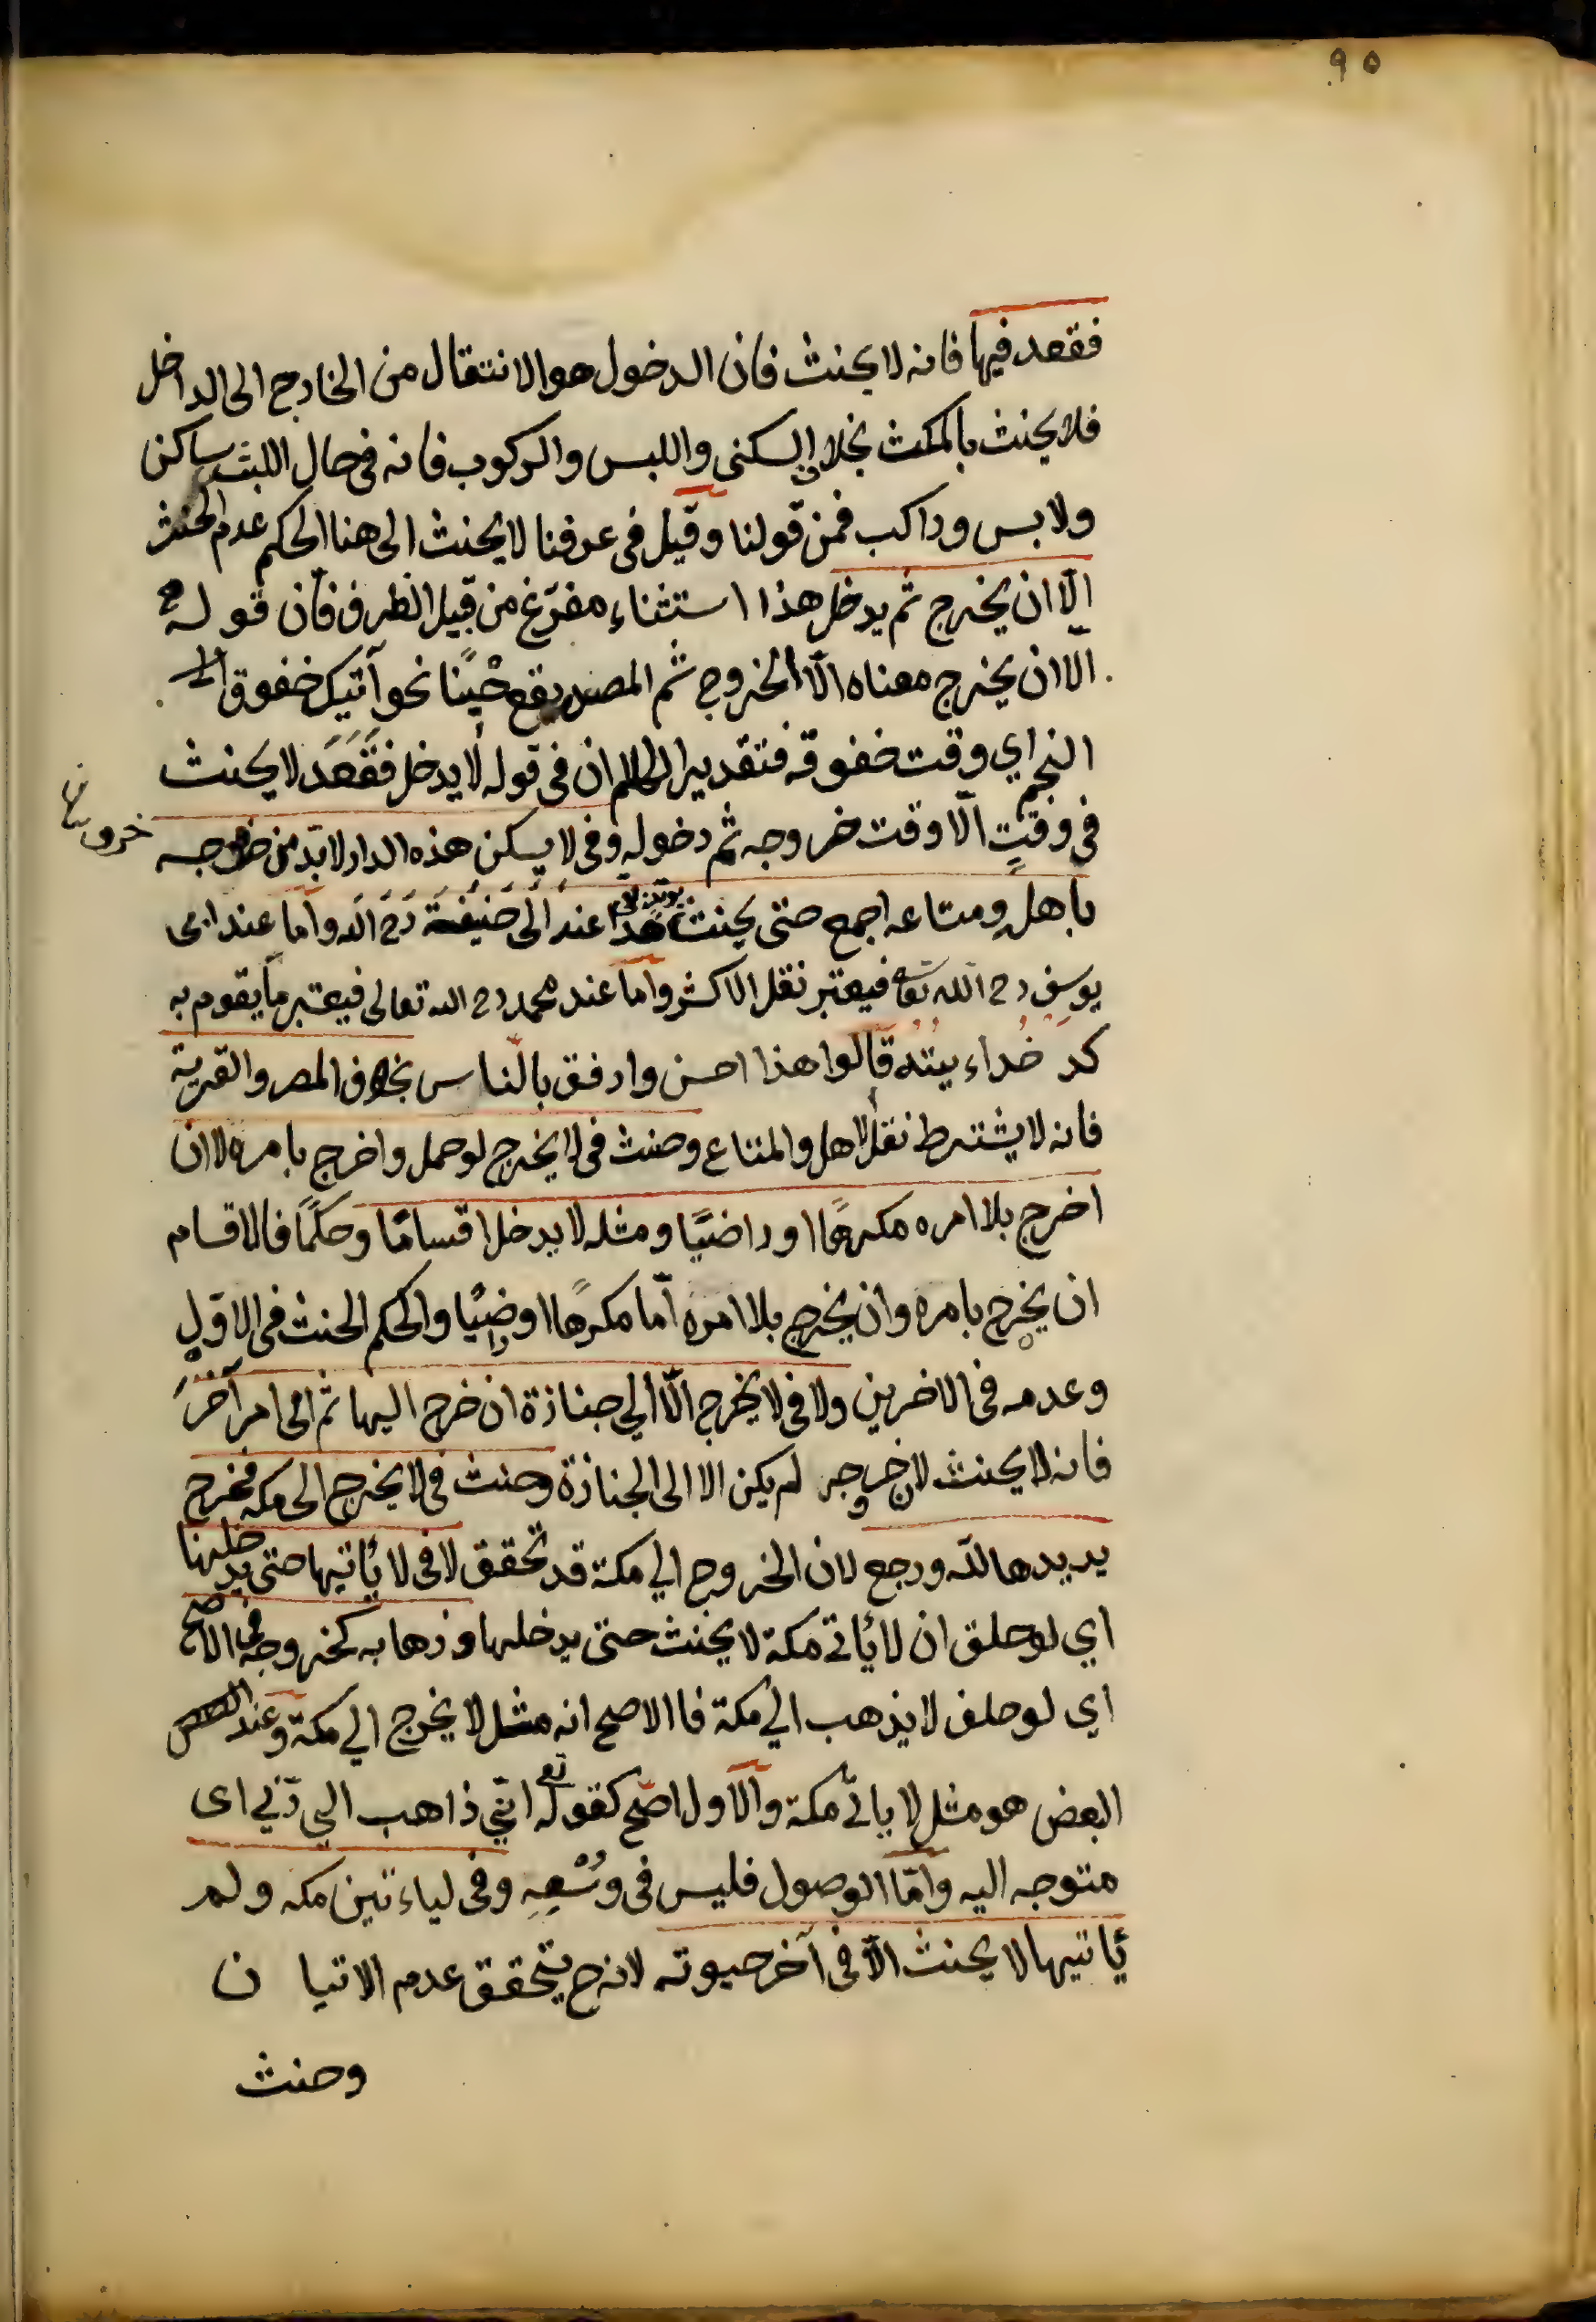 ٩٥
فقعد فيها فانه لا يحنث فان الدخول هو الانتقال من الخارج الى الداخل
فلا يحنث بالمكث بخلاف السكنى واللبس والركوب فانه في حال اللبث ساكن
ولابس وراكب فمن قولنا وقيل في عرفنا لا يحنث الى هنا الحكم عدم الحنث
الّا ان يخرج ثم يدخل هذا استثناء مفرّغ من قبيل الظرف فان قوله
الا ان يخرج معناه الّا الخروج ثم المصدر يقع حينًا نحو آتيك خفوق
النجم اي وقت خفوقه فتقدير الكلام ان في قوله لا يدخل فقَعَدَ لا يحنث
في وقتٍ الّا وقت خروجه ثم دخوله وفي لا يسكن هذه الدار لا بدّ من خروجه
خروج
باهله ومتاعه اجمع حتى يحنث بوتد بقى عند ابى حَنيفَة رح الله واما عند ابى
يوسف رح الله تعا فيعتبر نقل الاكثر واما عند محمد رح الله تعالى فيعتبر ما يقوم به
كد خداء بيته قالوا هذا احسن وارفق بالنّاس بخلاف المصر والقرية
فانه لا يشترط نقل الاهل والمتاع وحنث في لا يخرج لو حمل واخرج بامره لا ان
اخرج بلا امره مكرهًا او راضيًا ومثله لا يدخل اقسامًا وحكمًا فالاقسام
ان يخرج بامره وان يخرج بلا امره امّا مكرهًا او راضيًا والحكم الحنث في الاوّل
وعدمه في الاخرين ولا في لا يخرج الّا الي جنازة ان خرج اليها ثم الى امر آخر
فانه لا يحنث لان خروجه لم يكن الا الى الجنازة وحنث في لا يخرج الى مكه فخرج
يريدها للّه ورجع لان الخروج الي مكة قد تحقق لا في لا يأتيها حتى يدخلها
اي لو حلق ان لا يأتي مكة لا يحنث حتى يدخلها وذهابه كخروجه في الاصح
اي لو حلف لا يذهب الي مكة فاالاصح انه مثل لا يخرج الي مكة وعند
البعض هو مثل لا ياتي مكة والاول اصّح كقوله تع انّي ذاهب الي ربّي اى
متوجه اليه وامّا الوصول فليس في وُسْعِهِ وفي لياءتين مكه ولم
يأتيها لا يحنث الّا في آخر حيوته لانه ح يتحقق عدم الاتيان
وحنث